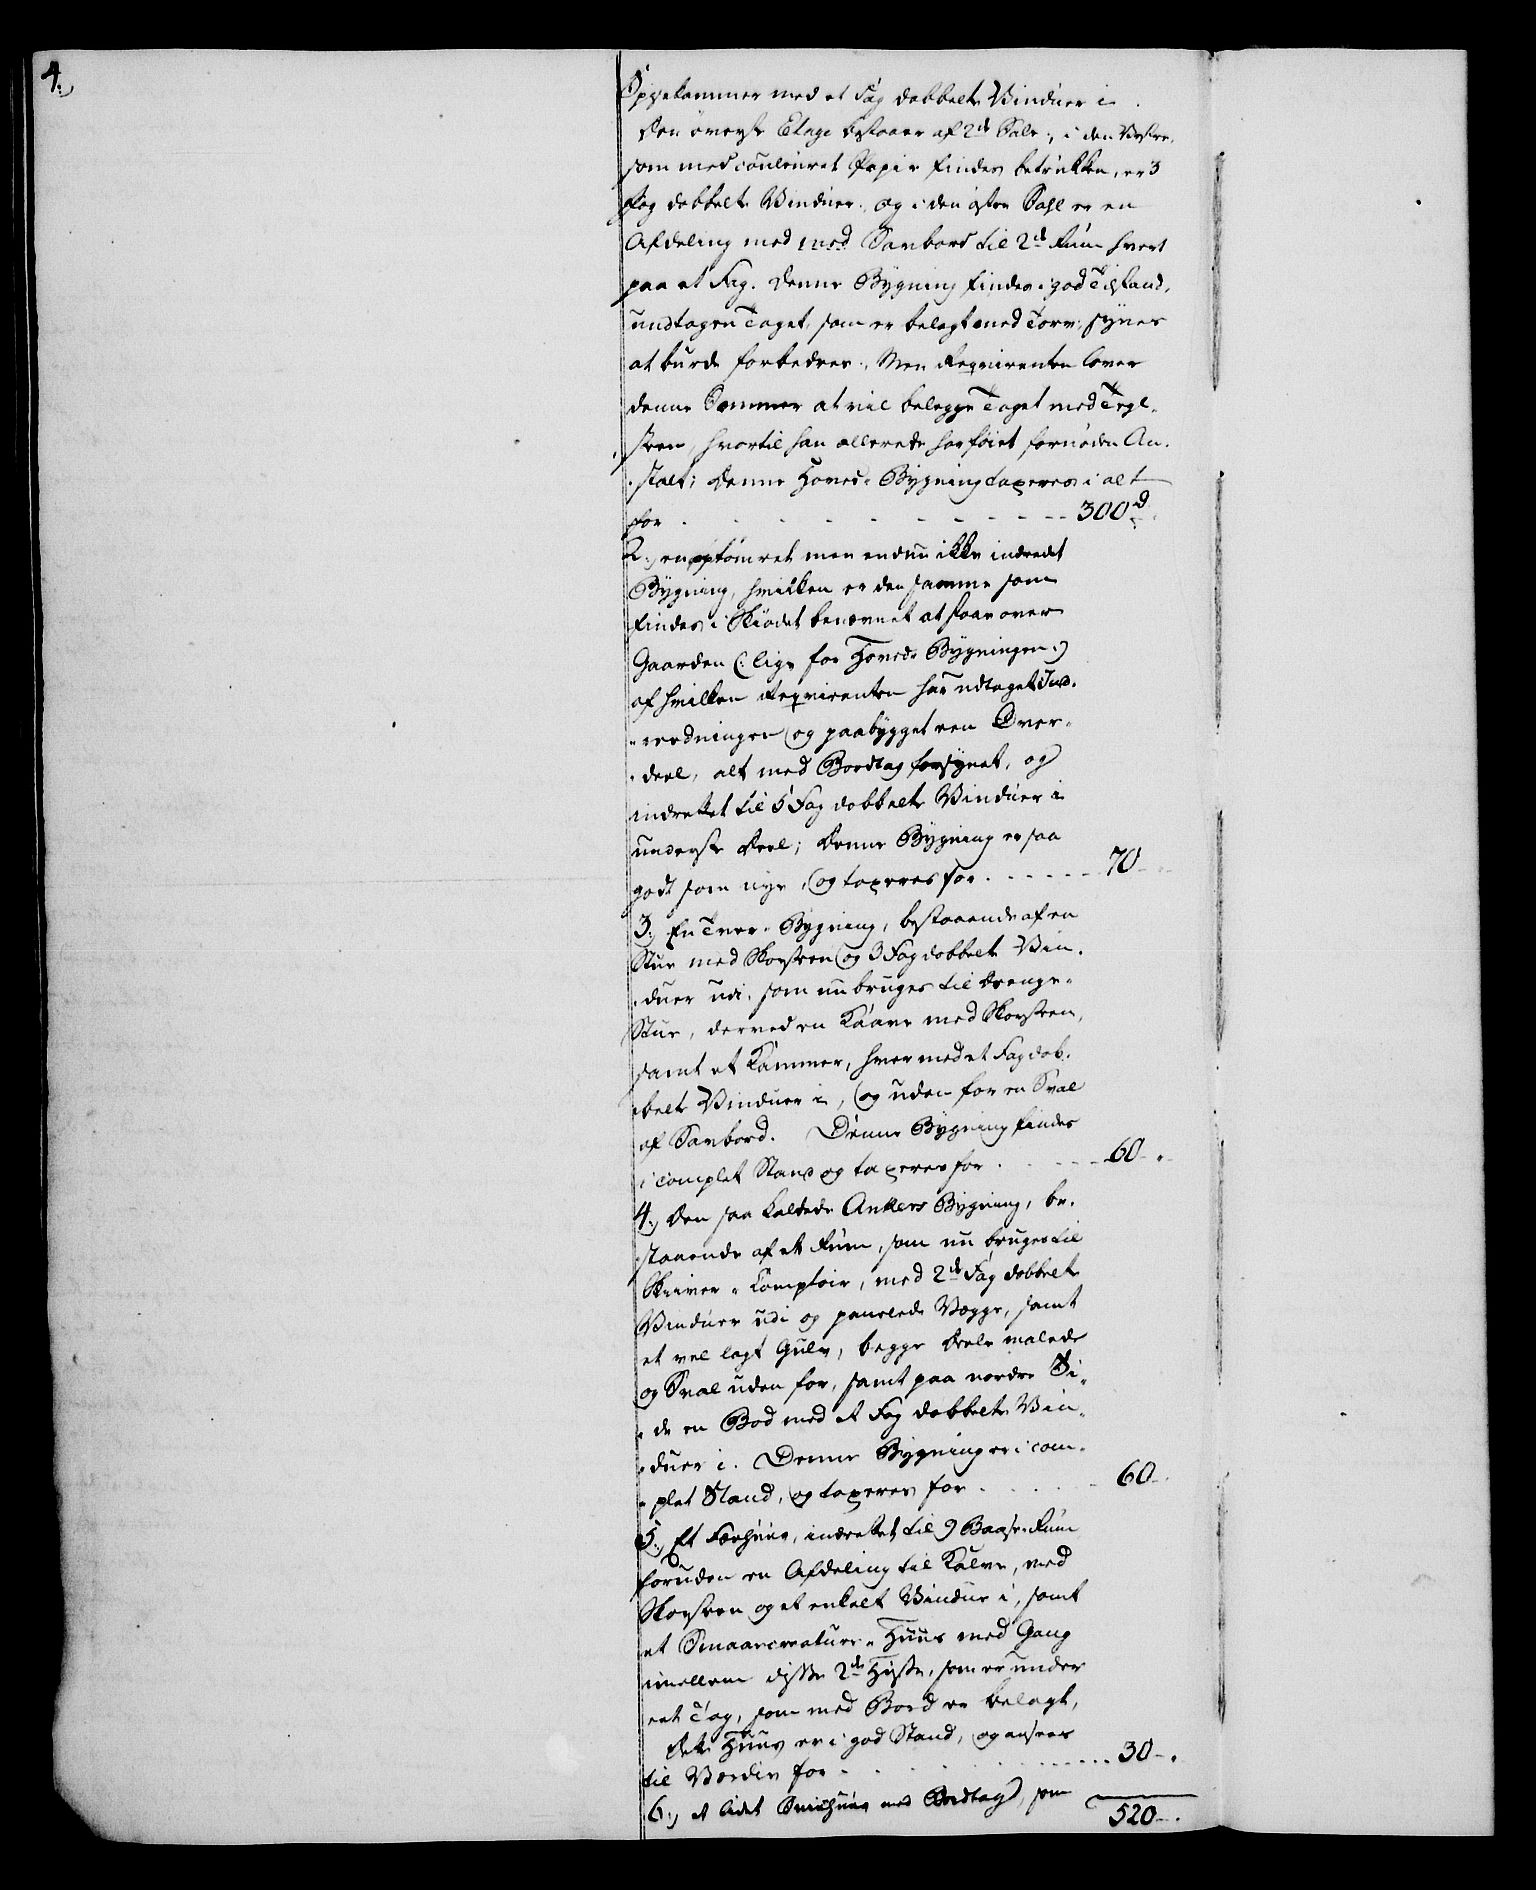 4.)
Spisekammer med et Fag dobbelte Vinduer i
Den øverste Etage bestaaer af 2de Sale, i den Vestre,
som med couleuret Papir findes betrukken, er 3
Fag dobbelte Vinduer, og i den østre Sahl er en
Afdeling med med Saubord til 2de Rum hvert
paa et Fag. Denne Bygning findes i god Tilstand,
undtagen Taget, som er belagt med Torv, synes
at burde forbedres. Men Reqvirenten lover
denne Sommer at vil belegge Taget med Tegl-
steen, hvortil han allerede har føiet fornøden An-
stalt; denne Hoved-Bygning taxeres i alt
for - - - - - - - - - 300 d
2.) en optømret men endnu ikke indredet
Bygning, hvilken er den samme som
findes i Skiødet benævnet at staae over
Gaarden (: lige for Hoved-Bygningen :)
af hvilken Reqvirenten har udtaget Ind-
reedningen og paabygget een Over-
deel, alt med Bordtag forsynet, og
indrettet til 5 Fag dobbelte Vinduer i
underste Deel; denne Bygning er saa
godt som nye, og taxeres for - - - - - 70 -
3.) En Tver-Bygning, bestaaende af en
Stue med Skorsteen og 3 Fag dobbelte Vin-
duer udi, som nu bruges til Drenge-
Stue, derved en Kaave med Skorsteen,
samt et Kammer, hver med et Fag dob-
belte Vinduer i, og uden for en Sval
af Saubord. Denne Bygning findes
i complet Stand og taxeres for - - - - 60 -
4.) Den saa kaldede Ankers Bygning, be-
staaende af et Rum, som nu bruges til
Skriver-Comptoir, med 2de Fag dobbelte
Vinduer udi og panelede Vægge, samt
et vel lagt Gulv, begge Dele malede
og Sval uden for, samt paa nordre Si-
de en Bod med et Fag dobbelte Vin-
duer i. Denne Bygning er i com-
plet Stand, og taxeres for - - - - 60 -
5.) Et Fæehuus, indrettet til 9 Baase-Rum
foruden en Afdeling til Kalve, med
Skorsteen og et enkelt Vindue i, samt
et Smaaecreature-Huus med Gang
imellem disse 2de Huse, som er under
eet Tag, som med Bord er belagt,
dette Huus er i god Stand, og ansees
til Værdie for - - - - - - - 30 -
6.) et lidet med Bordtag, som
520 -